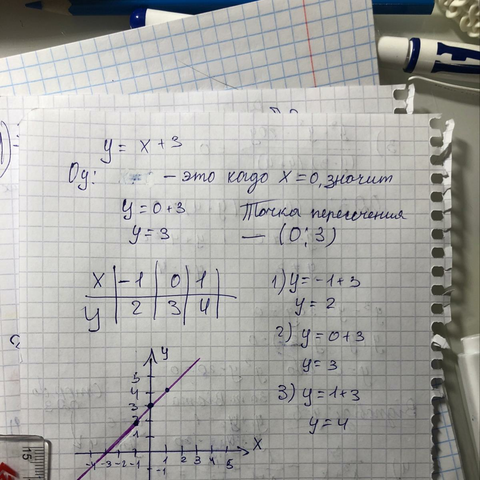 y = x + 3
Oy: - это кодо x = 0, значит
y = 0+3 Точка пересечения
y = 3 — (0; 3)
x | -1 | 0 | 1
y | 2 | 3 | 4
1) y = -1+3
y = 2
2) y = 0+3
y = 3
3) y = 1+3
y = 4
y
5
4
3
2
1
-4 -3 -2 -1 1 2 3 4 5 x
-1